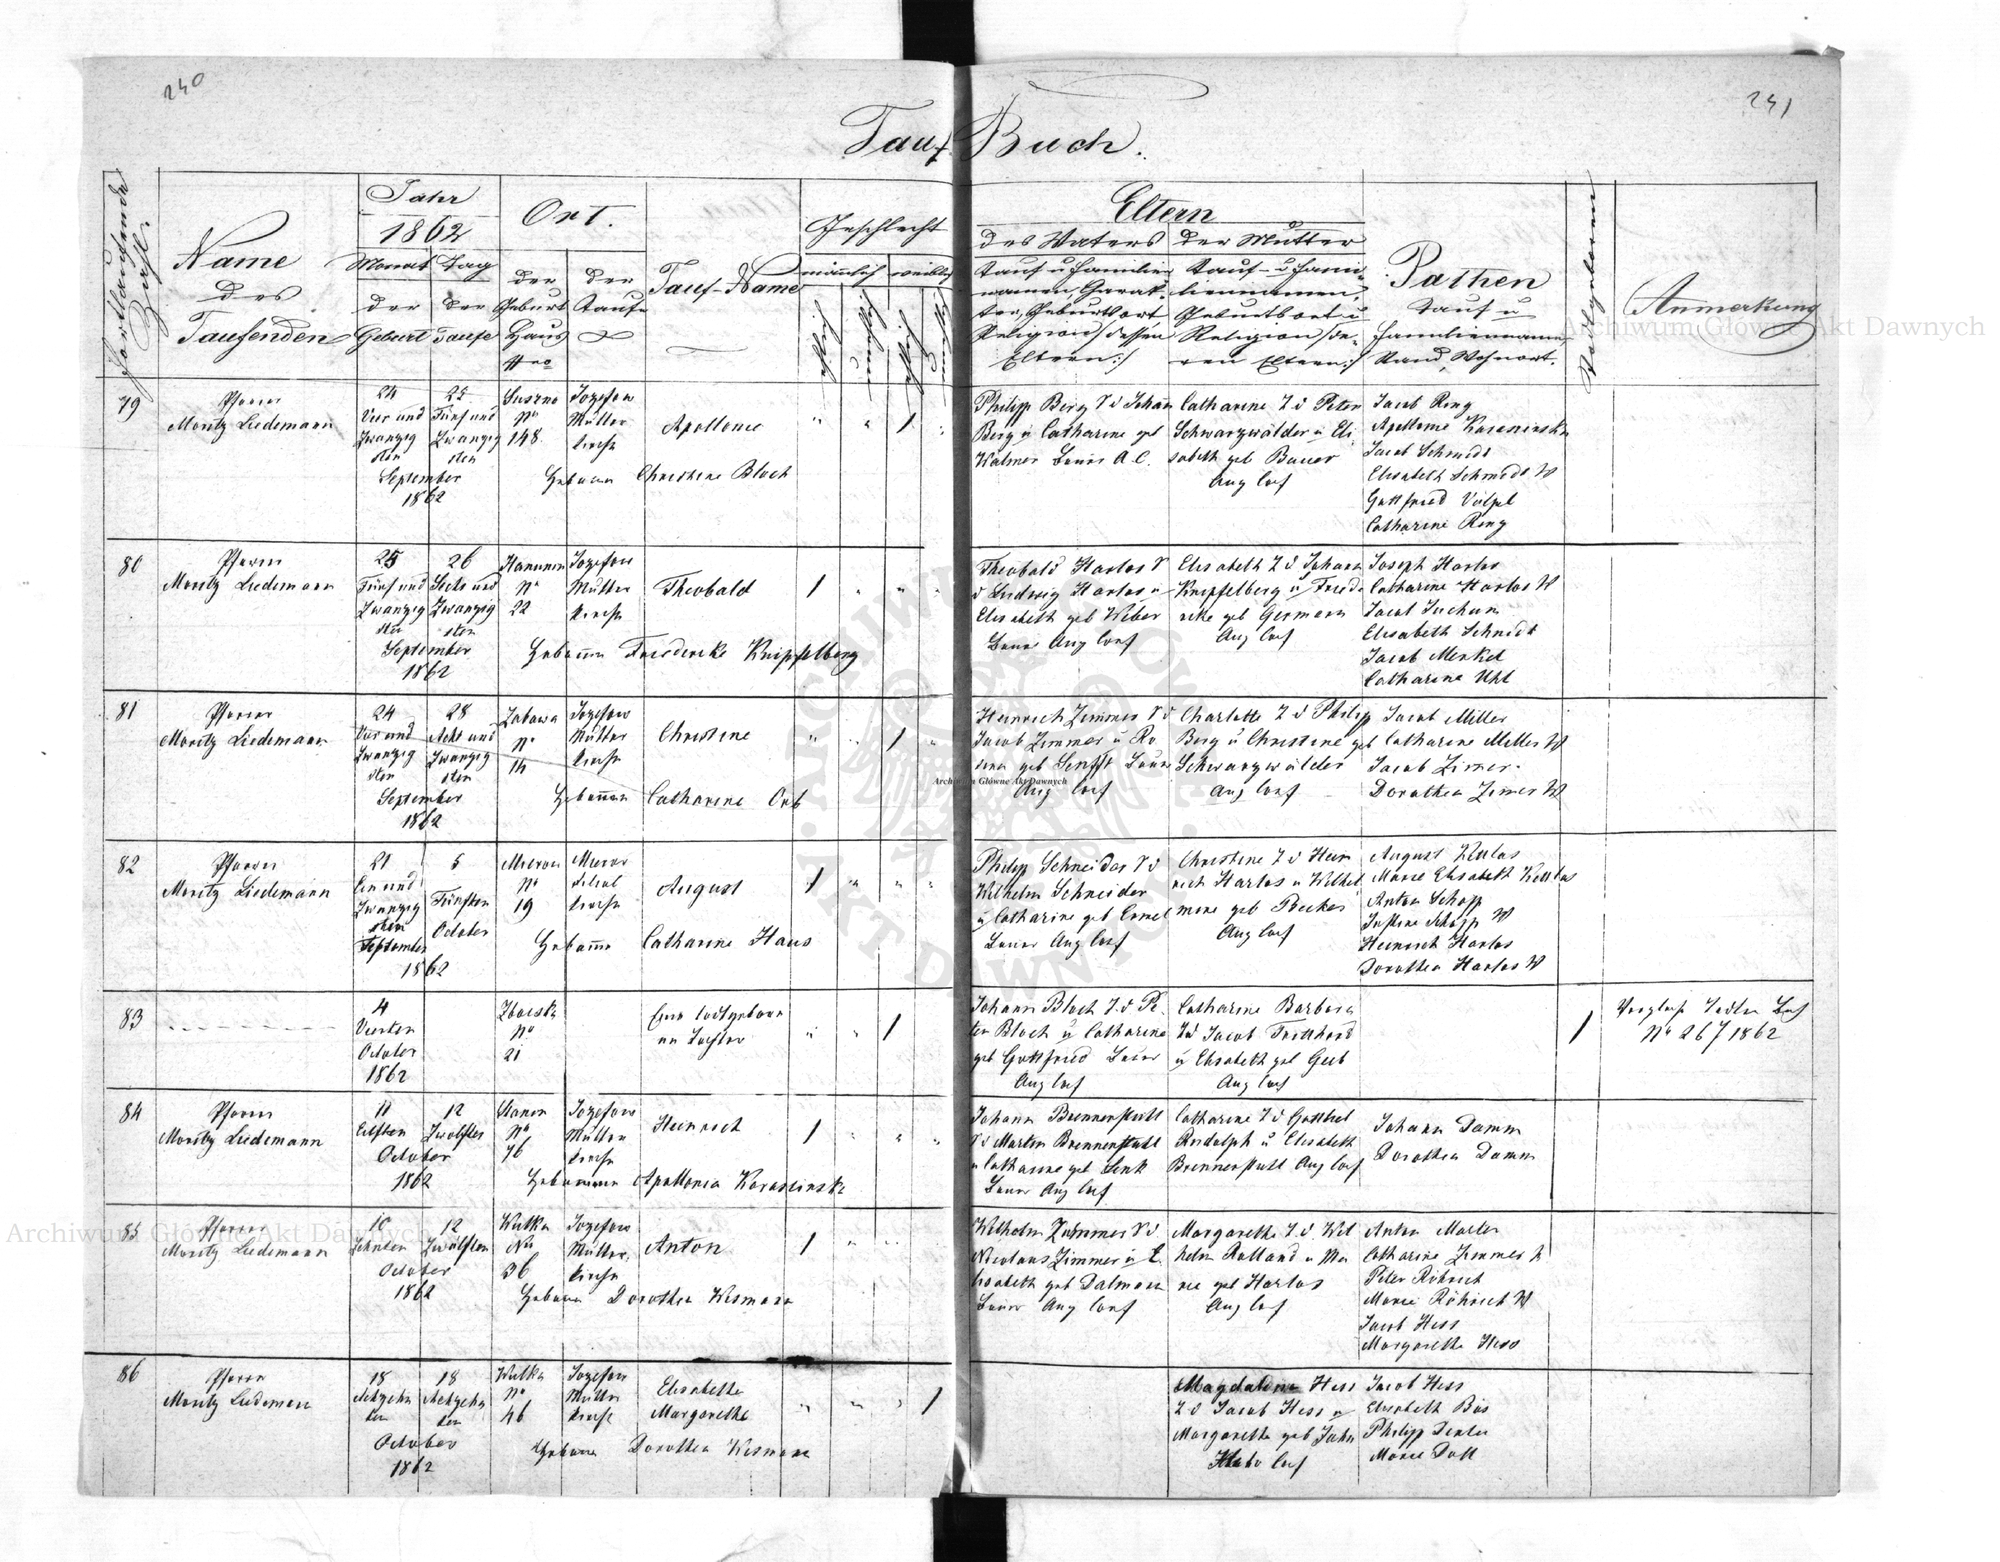 240
241
Tauf Buch.
Fortlaufende Zahl.
Name
des
Taufenden
Jahr
1862
Monat Tag
der der
Geburt Taufe
Ort.
der
Geburt
Haus
Nro
der
Taufe
Tauf-Name
Geschlecht
männlich weiblich
ehelich
unehelich
ehelich
unehelich
Eltern
des Vaters
Tauf u Familien
namen, Charak-
ter, Geburtsort
Religion /dessen
Eltern:/
der Mutter
Tauf- u Fami-
liennamen,
Geburtsort u
Religion /de-
ren Eltern:/
Pathen
Tauf u
Familienname,
Stand, Wohnort.
Todtgeborene
Anmerkung
79
Pfarrer
Moritz Liedemann
24
Vier und
Zwanzig
sten
25
Fünf und
Zwanzig
sten
September
1862
Suszno
No
148
Jozefow
Mutter
kirche
Apollonie
1
Hebamme Christine Bloch
Philipp Berg S d Johann
Berg u Catharine geb
Walmer Bauer A. C.
Catharine T d Peter
Schwarzwälder u Eli
sabeth geb Bauer
Aug Conf
Jacob Ring
Apollonie Karasinska
Jacob Schmidt
Elisabeth Schmidt W
Gottfried Völpel
Catharine Ring
80
Pfarrer
Moritz Liedemann
25
Fünf und
Zwanzig
sten
26
Sechs und
Zwanzig
sten
September
1862
Hanunin
No
22
Jozefow
Mutter
kirche
Theobald
1
Hebamme Friedericke Knipfelberg
Theobald Harlos S
d Ludwig Harlos u
Elisabeth geb Weber
Bauer Aug Conf
Elisabeth T d Johann
Knipfelberg u Friede
ricke geb Germann
Aug Conf
Joseph Harlos
Catharine Harlos W
Jacob Juchum
Elisabeth Schmidt
Jacob Merkel
Catharine Uhl
81
Pfarrer
Moritz Liedemann
24
Vier und
Zwanzig
sten
28
Acht und
Zwanzig
sten
September
1862
Zabawa
No
14
Jozefow
Mutter
kirche
Christine
1
Hebamme Catharine Orb
Heinrich Zimmer S d
Jacob Zimmer u Ro
sina geb Senft Bauer
Aug Conf
Charlotte T d Philipp
Berg u Christine geb
Schwarzwälder
Aug Conf
Jacob Miller
Catharine Miller W
Jacob Zimer
Dorothea Zimer W
82
Pfarrer
Moritz Liedemann
21
Ein und
Zwanzig
sten
September
5
Fünften
October
1862
Mierow
No
19
Mierow
Filial
kirche
August
1
Hebamme Catharine Haus
Philipp Schneider S d
Wilhelm Schneider
u Catharine geb
Bauer Aug Conf
Christine T d Hein
rich Harlos u Wilhel
mine geb Becker
Aug Conf
August
Marie Elisabeth
Anton Schopp
Justine Schopp W
Heinrich Harlos
Dorothea Harlos W
83
4
Vierten
October
1862
No
21
Eine todtgebore
ne Tochter
1
Johann Bloch S d Pe
ter Bloch u Catharine
geb Gottfried Bauer
Aug Conf
Catharine Barbara
T d Jacob
u Elisabeth geb
Aug Conf
1
Vergleich Todten Buch
No 267 1862
84
Pfarrer
Moritz Liedemann
11
Eilften
12
Zwölften
October
1862
Hanun
No
76
Jozefow
Mutter
kirche
Heinrich
1
Hebamme Apollonia Karasinska
Johann Brennenstuhl
S d Martin Brennenstuhl
u Catharine geb Senk
Bauer Aug Conf
Catharine T d Gottlieb
Rudolph u Elisabeth
Brennenstuhl Aug Conf
Johann Damm
Dorothea Damm
85
Pfarrer
Moritz Liedemann
10
Zehnten
12
Zwölften
October
1862
Wulka
No
36
Jozefow
Mutter
kirche
Anton
1
Hebamme Dorothea Wismann
Wilhelm Zimmer S d
Nicolaus Zimmer u E
lisabeth geb Dalmann
Bauer Aug Conf
Margarethe T d Wil
helm Rolland u Ma
rie geb Harlos
Aug Conf
Anton Marten
Catharine Zimmer
Peter Röhrich
Marie Röhrich W
Jacob Hess
Margarethe Hess
86
Pfarrer
Moritz Liedemann
18
Achtzehn
ten
18
Achtzehn
ten
October
1862
Wulka
No
46
Jozefow
Mutter
kirche
Elisabethe
Margarethe
1
Hebamme Dorothea Wismann
Magdalena Hess
T d Jacob Hess u
Margarethe geb Jahn
Conf
Jacob Hess
Elisabeth Bös
Philipp Dexler
Marie Doll
Archiwum Główne Akt Dawnych
Archiwum Główne Akt Dawnych
Archiwum Główne Akt Dawnych